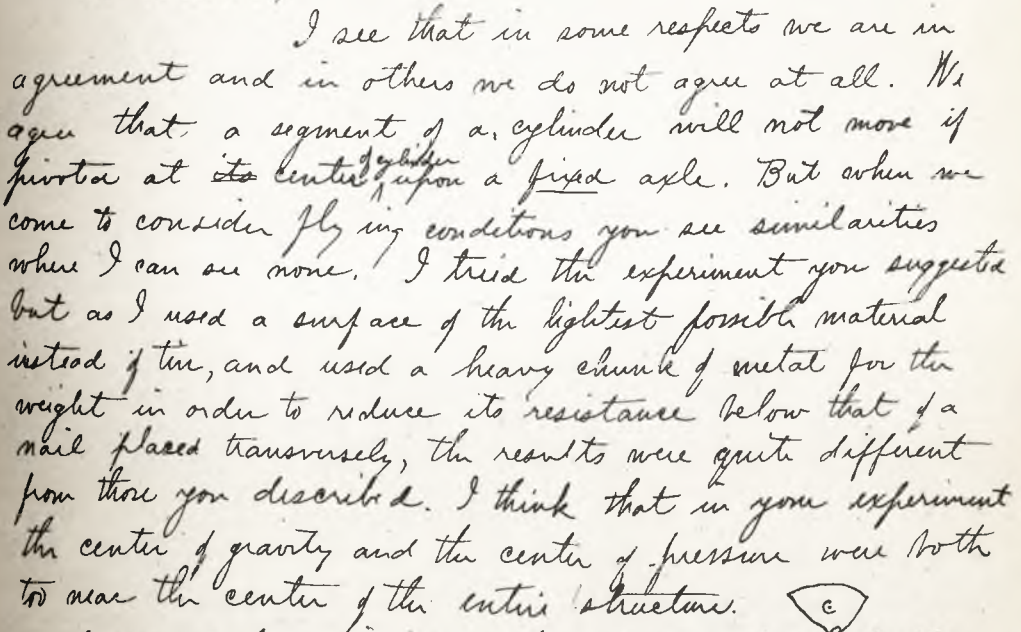 I see that in some respects we are in
agreement and in others we do not agree at all. We
agree that a segment of a cylinder will not move if
pivoted at its center of cylinder upon a fixed axle. But when we
come to consider flying conditions you see similarities
where I can see none. I tried the experiment you suggested
but as I used a surface of the lightest possible material
instead of tin, and used a heavy chunk of metal for the
weight in order to reduce its resistance below that of a
nail placed transversely, the results were quite different
from those you described. I think that in your experiment
the center of gravity and the center of pressure were both
too near the center of the entire structure.
c